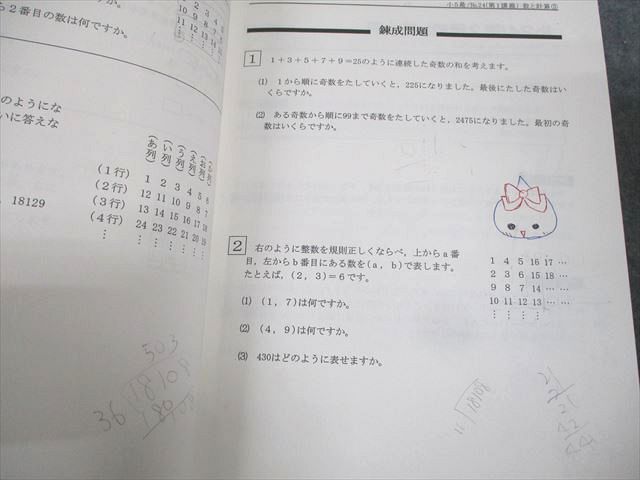 ら2番目の数は何ですか。
のようにな
いに答えな
(あ列) (い列) (う列) (え列) (お列)
(1行) 1 2 3 4 5 6
(2行) 12 11 10 9 8 7
(3行) 13 14 15 16 17 18
(4行) 24 23 22 21 20 19
⋮ ⋮ ⋮ ⋮ ⋮ ⋮
, 18129
503
36
18108
180
小5最/No.24(第1講義) 数と計算③
錬成問題
1 1+3+5+7+9=25のように連続した奇数の和を考えます。
(1) 1から順に奇数をたしていくと,225になりました。最後にたした奇数はい
くらですか。
(2) ある奇数から順に99まで奇数をたしていくと,2475になりました。最初の奇
数はいくらですか。
2 右のように整数を規則正しくならべ,上からa番
目,左からb番目にある数を(a,b)で表します。
たとえば,(2,3)=6です。
1 4 5 16 17 …
2 3 6 15 18 …
9 8 7 14 … …
10 11 12 13 … …
⋮ ⋮ ⋮ ⋮
(1) (1,7)は何ですか。
(2) (4,9)は何ですか。
(3) 430はどのように表せますか。
18108